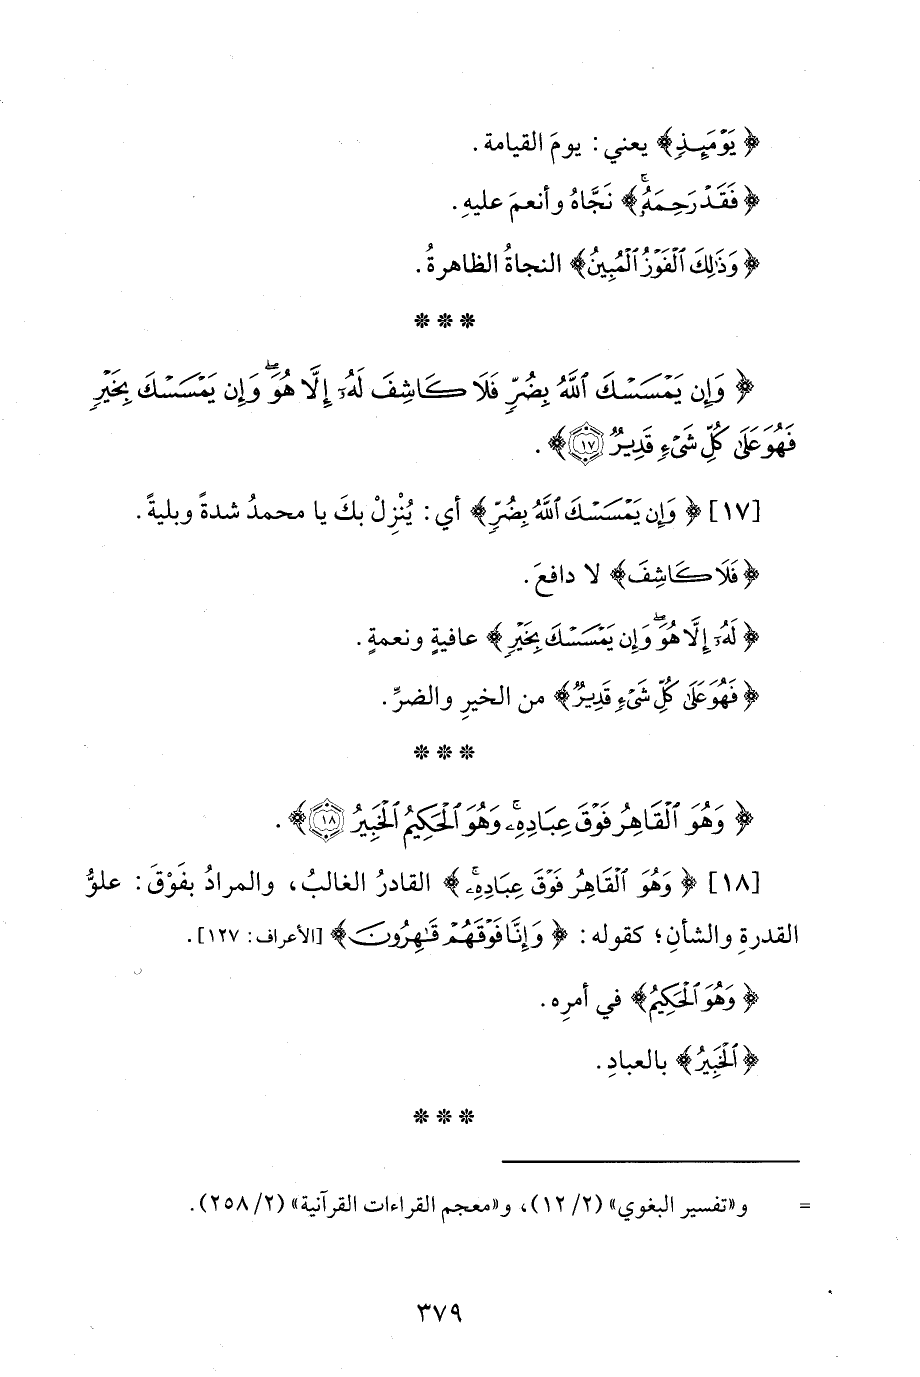 ﴿يَوْمَئِذٍ﴾ يعني: يومَ القيامة.
﴿فَقَدْ رَحِمَهُۥ﴾ نَجَّاهُ وأنعمَ عليهِ.
﴿وَذَٰلِكَ ٱلْفَوْزُ ٱلْمُبِينُ﴾ النجاةُ الظاهرةُ.
* * *
﴿وَإِن يَمْسَسْكَ ٱللَّهُ بِضُرٍّ فَلَا كَاشِفَ لَهُۥٓ إِلَّا هُوَ ۖ وَإِن يَمْسَسْكَ بِخَيْرٍ
فَهُوَ عَلَىٰ كُلِّ شَىْءٍ قَدِيرٌ ١٧﴾.
[١٧] ﴿وَإِن يَمْسَسْكَ ٱللَّهُ بِضُرٍّ﴾ أي: يُنْزِلْ بكَ يا محمدُ شدةً وبليةً.
﴿فَلَا كَاشِفَ﴾ لا دافعَ.
﴿لَهُۥٓ إِلَّا هُوَ ۖ وَإِن يَمْسَسْكَ بِخَيْرٍ﴾ عافيةٍ ونعمةٍ.
﴿فَهُوَ عَلَىٰ كُلِّ شَىْءٍ قَدِيرٌ﴾ من الخيرِ والضرِّ.
* * *
﴿وَهُوَ ٱلْقَاهِرُ فَوْقَ عِبَادِهِۦ ۚ وَهُوَ ٱلْحَكِيمُ ٱلْخَبِيرُ ١٨﴾.
[١٨] ﴿وَهُوَ ٱلْقَاهِرُ فَوْقَ عِبَادِهِۦ ۚ﴾ القادرُ الغالبُ، والمرادُ بفَوْقَ: علوُّ
القدرةِ والشأنِ؛ كقوله: ﴿وَإِنَّا فَوْقَهُمْ قَٰهِرُونَ﴾ [الأعراف: ١٢٧].
﴿وَهُوَ ٱلْحَكِيمُ﴾ في أمرِه.
﴿ٱلْخَبِيرُ﴾ بالعبادِ.
* * *
= و«تفسير البغوي» (٢/ ١٢)، و«معجم القراءات القرآنية» (٢/ ٢٥٨).
٣٧٩